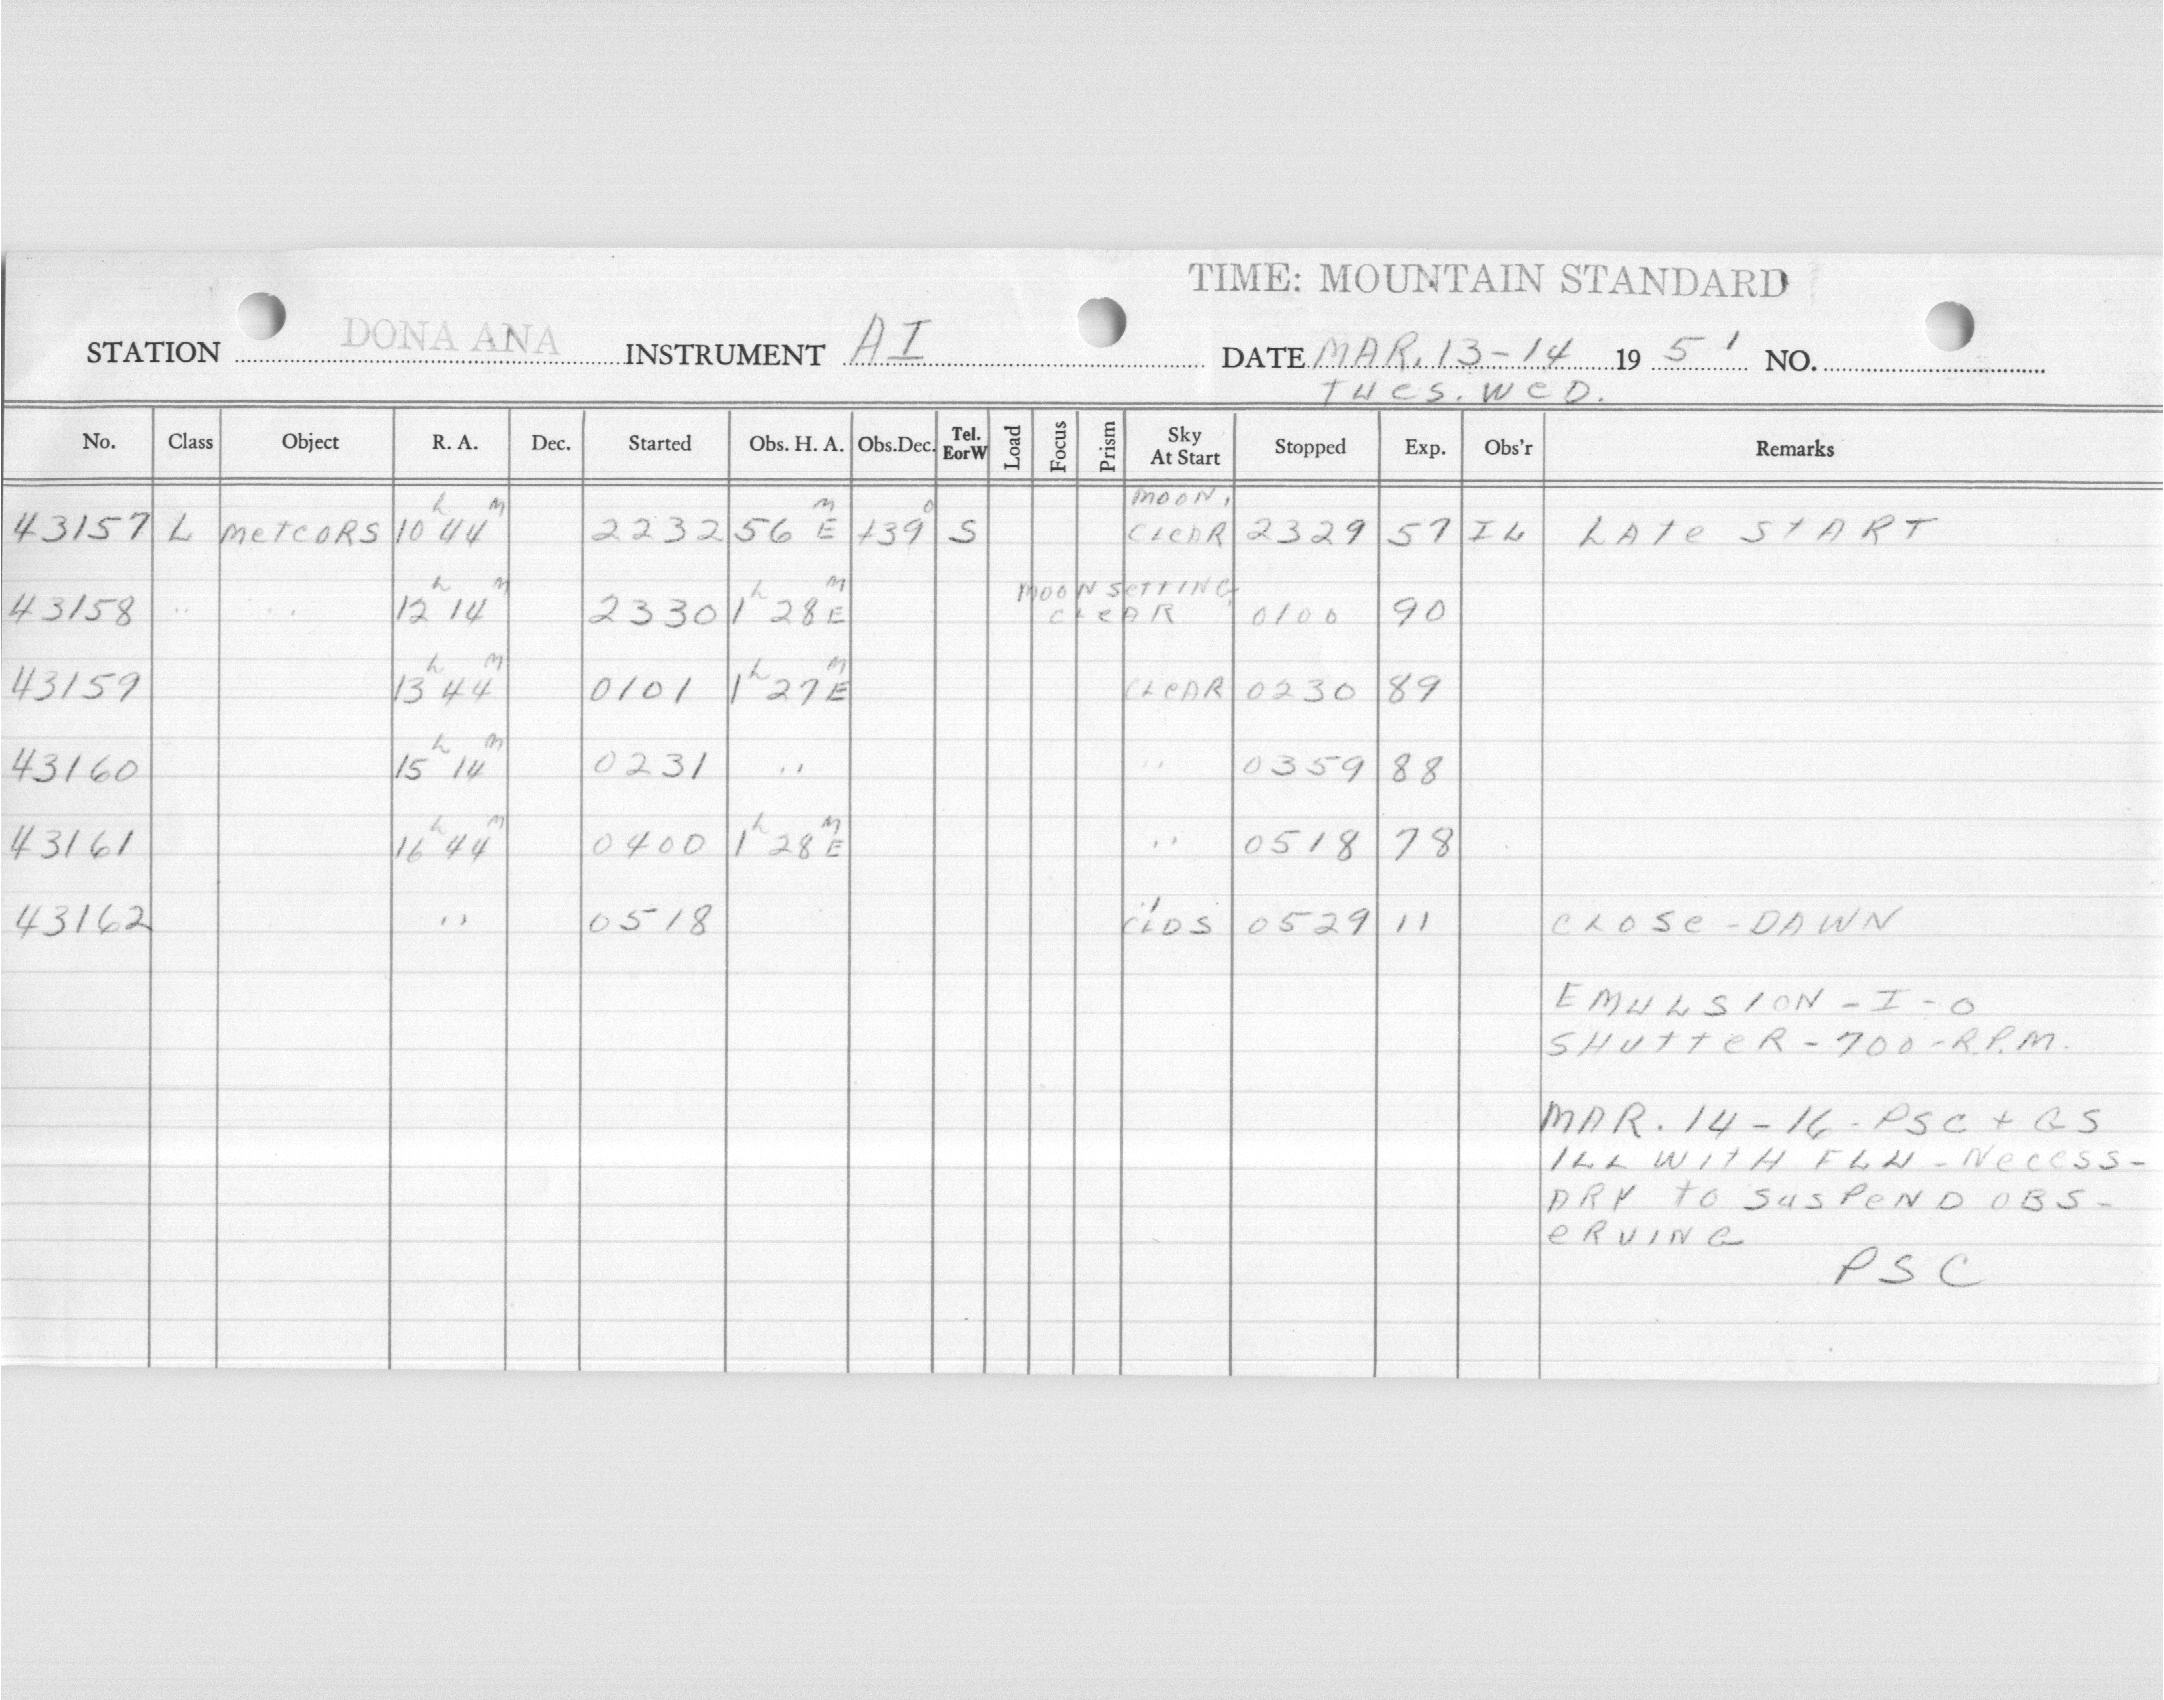 TIME: MOUNTAIN STANDARD
STATION DONA ANA INSTRUMENT AI DATE MAR. 13-14 1951 NO.
TUES. WED.
No. Class Object R. A. Dec. Started Obs. H. A. Obs.Dec. Tel. EorW Load Focus Prism Sky At Start Stopped Exp. Obs'r Remarks
43157 L METEORS 10h 44m 2232 56m E +39° S MOON, CLEAR 2329 57 IL LATE START
43158 " " 12h 14m 2330 1h 28m E MOON SETTING, CLEAR 0100 90
43159 13h 44m 0101 1h 27m E CLEAR 0230 89
43160 15h 14m 0231 " " 0359 88
43161 16h 44m 0400 1h 28m E " 0518 78
43162 " 0518 " CLDS 0529 11 CLOSE - DAWN
EMULSION - I - O
SHUTTER - 700 - R.P.M.
MAR. 14 - 16 - PSC + GS
ILL WITH FLU - NECESS-
ARY TO SUSPEND OBS-
ERVING
PSC